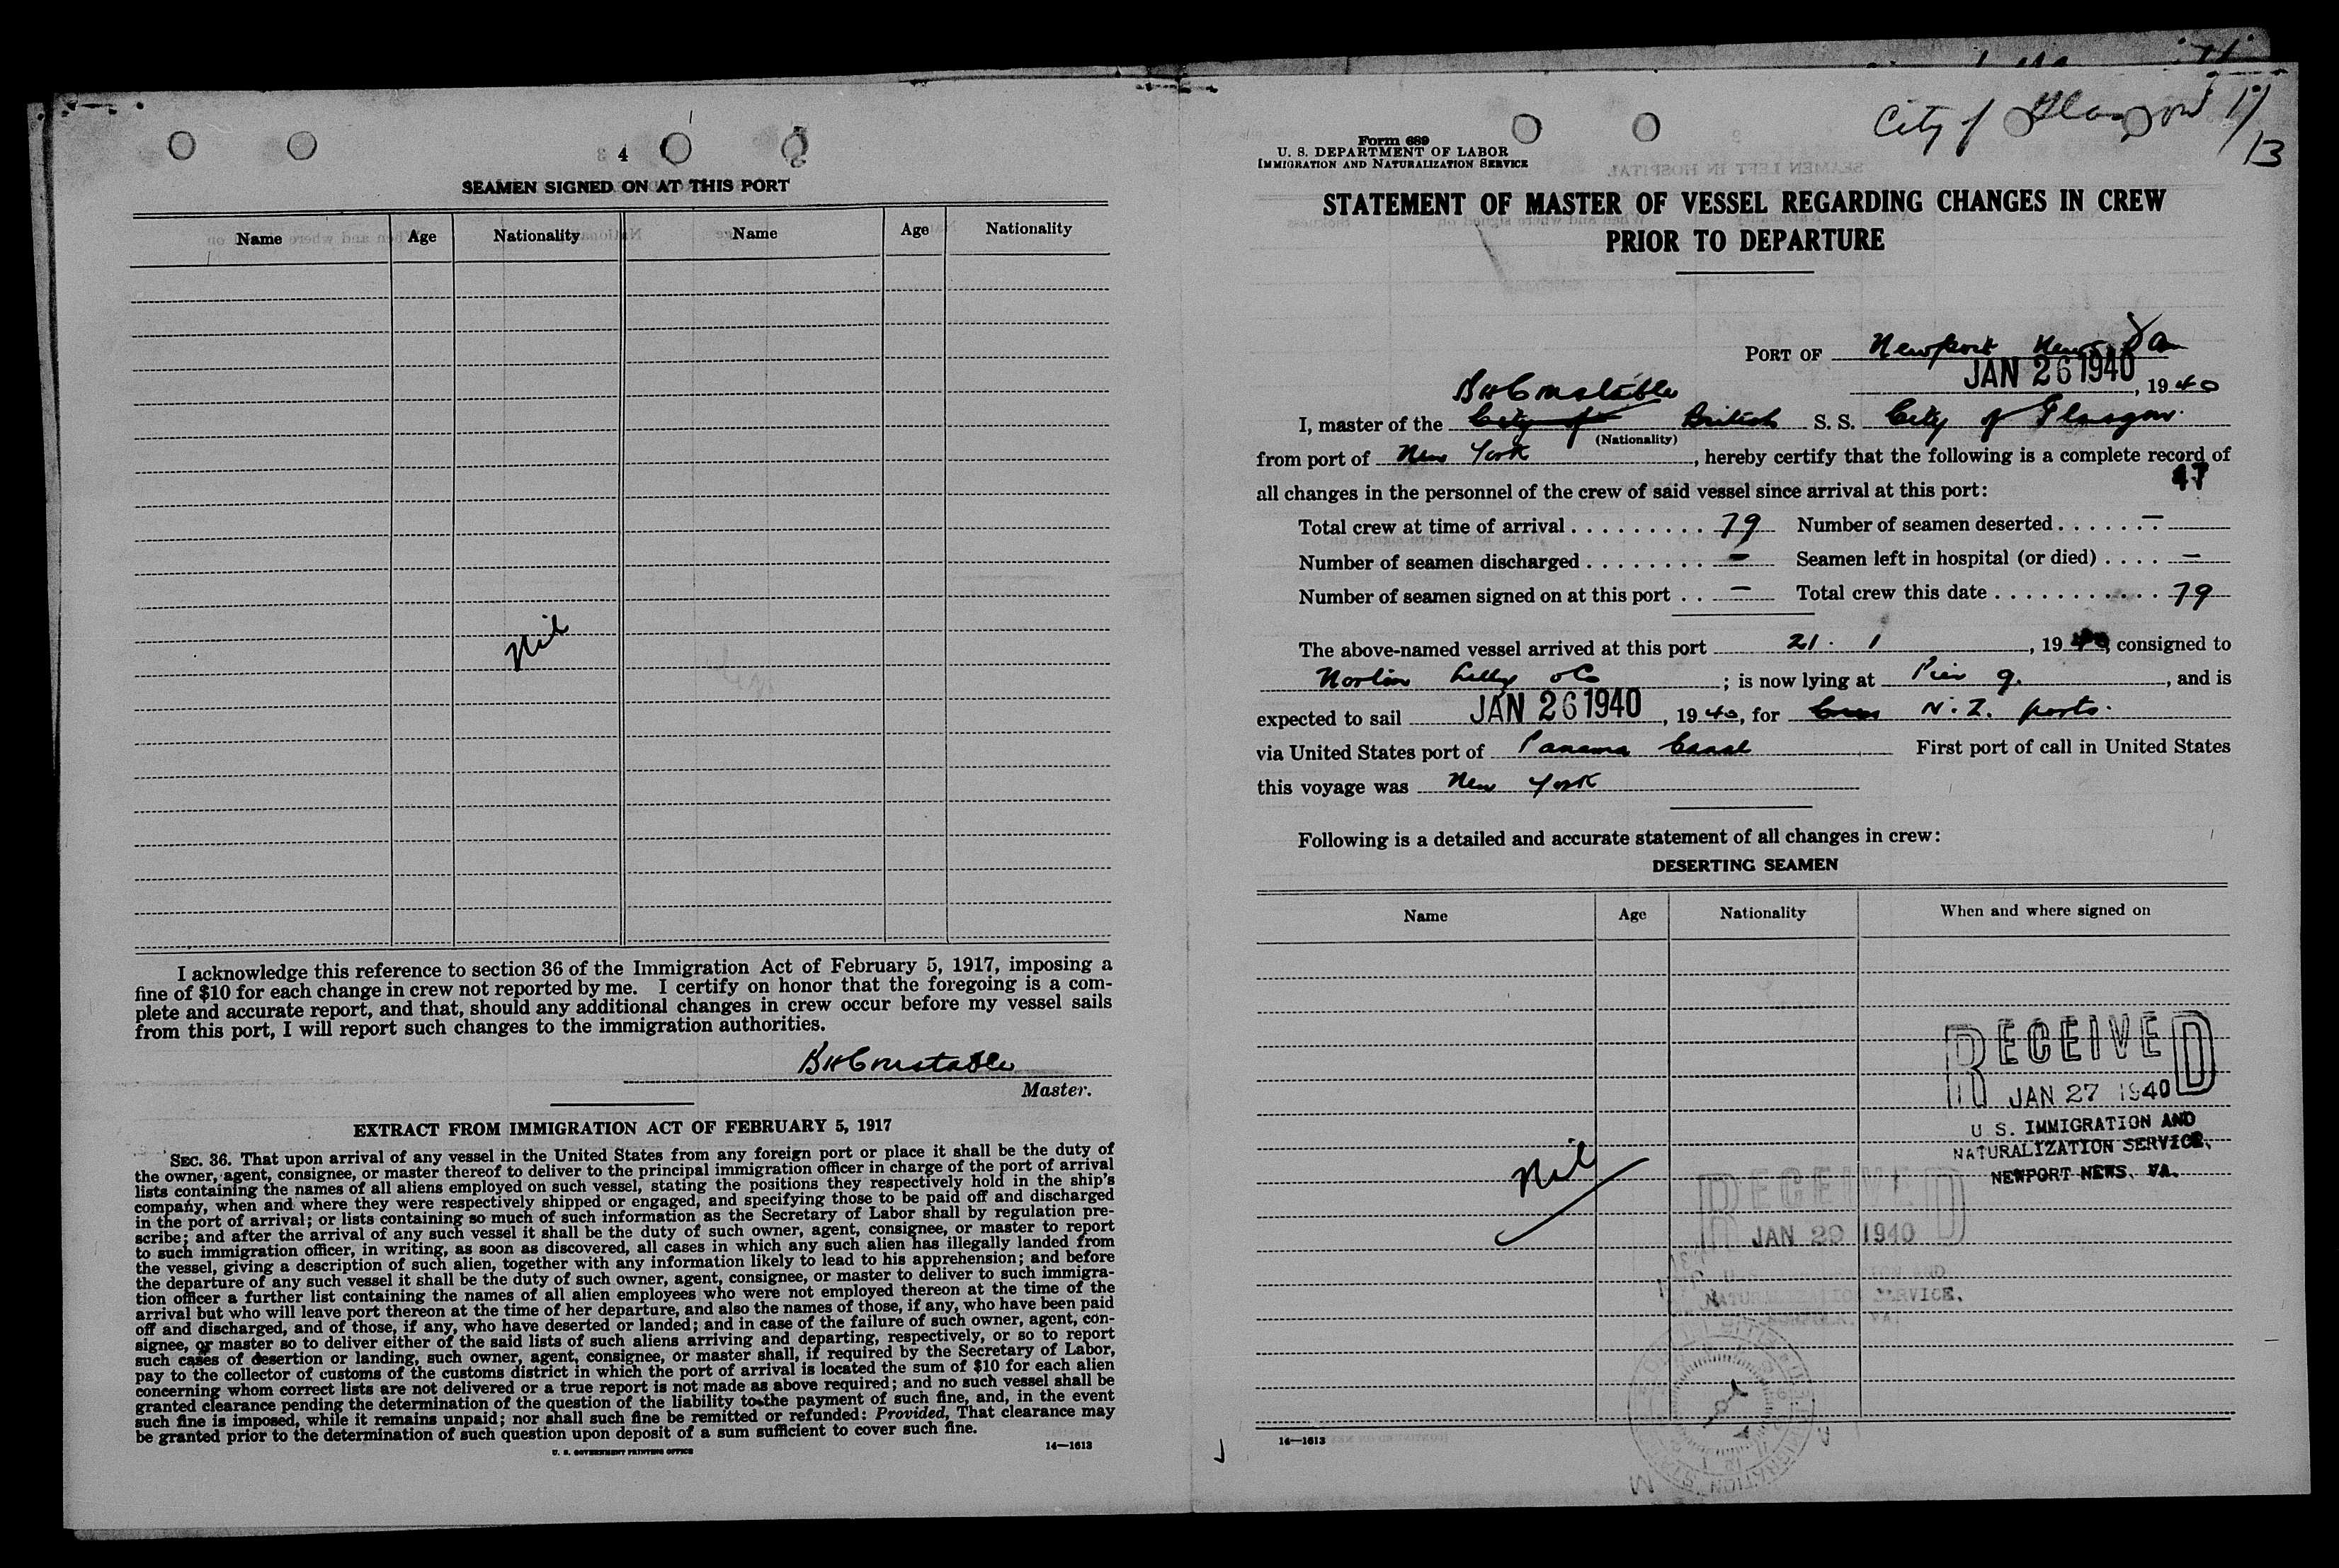 4
SEAMEN SIGNED ON AT THIS PORT
Name Age Nationality Name Age Nationality
Nil
I acknowledge this reference to section 36 of the Immigration Act of February 5, 1917, imposing a
fine of $10 for each change in crew not reported by me. I certify on honor that the foregoing is a com-
plete and accurate report, and that, should any additional changes in crew occur before my vessel sails
from this port, I will report such changes to the immigration authorities.
BHConstable
Master.
EXTRACT FROM IMMIGRATION ACT OF FEBRUARY 5, 1917
SEC. 36. That upon arrival of any vessel in the United States from any foreign port or place it shall be the duty of
the owner, agent, consignee, or master thereof to deliver to the principal immigration officer in charge of the port of arrival
lists containing the names of all aliens employed on such vessel, stating the positions they respectively hold in the ship's
company, when and where they were respectively shipped or engaged, and specifying those to be paid off and discharged
in the port of arrival; or lists containing so much of such information as the Secretary of Labor shall by regulation pre-
scribe; and after the arrival of any such vessel it shall be the duty of such owner, agent, consignee, or master to report
to such immigration officer, in writing, as soon as discovered, all cases in which any such alien has illegally landed from
the vessel, giving a description of such alien, together with any information likely to lead to his apprehension; and before
the departure of any such vessel it shall be the duty of such owner, agent, consignee, or master to deliver to such immigra-
tion officer a further list containing the names of all alien employees who were not employed thereon at the time of the
arrival but who will leave port thereon at the time of her departure, and also the names of those, if any, who have been paid
off and discharged, and of those, if any, who have deserted or landed; and in case of the failure of such owner, agent, con-
signee, or master so to deliver either of the said lists of such aliens arriving and departing, respectively, or so to report
such cases of desertion or landing, such owner, agent, consignee, or master shall, if required by the Secretary of Labor,
pay to the collector of customs of the customs district in which the port of arrival is located the sum of $10 for each alien
concerning whom correct lists are not delivered or a true report is not made as above required; and no such vessel shall be
granted clearance pending the determination of the question of the liability to the payment of such fine, and, in the event
such fine is imposed, while it remains unpaid; nor shall such fine be remitted or refunded: Provided, That clearance may
be granted prior to the determination of such question upon deposit of a sum sufficient to cover such fine.
U. S. GOVERNMENT PRINTING OFFICE 14—1613
City of Glasgow 11/13
Form 689
U. S. DEPARTMENT OF LABOR
IMMIGRATION AND NATURALIZATION SERVICE
STATEMENT OF MASTER OF VESSEL REGARDING CHANGES IN CREW
PRIOR TO DEPARTURE
PORT OF Newport News Va
JAN 26 1940, 1940
BHConstable
I, master of the City of British S. S. City of Glasgow
(Nationality)
from port of New York, hereby certify that the following is a complete record of
47
all changes in the personnel of the crew of said vessel since arrival at this port:
Total crew at time of arrival . . . . . . . . . 79 Number of seamen deserted . . . . . . –
Number of seamen discharged . . . . . . . . – Seamen left in hospital (or died) . . . . –
Number of seamen signed on at this port . . – Total crew this date . . . . . . . . . . . 79
The above-named vessel arrived at this port 21 . 1, 1940, consigned to
Norton Lilly & Co; is now lying at Pier 9., and is
expected to sail JAN 26 1940, 1940, for N.Z. ports.
via United States port of Panama Canal First port of call in United States
this voyage was New York
Following is a detailed and accurate statement of all changes in crew:
DESERTING SEAMEN
Name Age Nationality When and where signed on
RECEIVED
JAN 27 1940
U S. IMMIGRATION AND
NATURALIZATION SERVICE,
NEWPORT NEWS, VA.
Nil
RECEIVED
JAN 29 1940
NATURALIZATION SERVICE,
14—1613